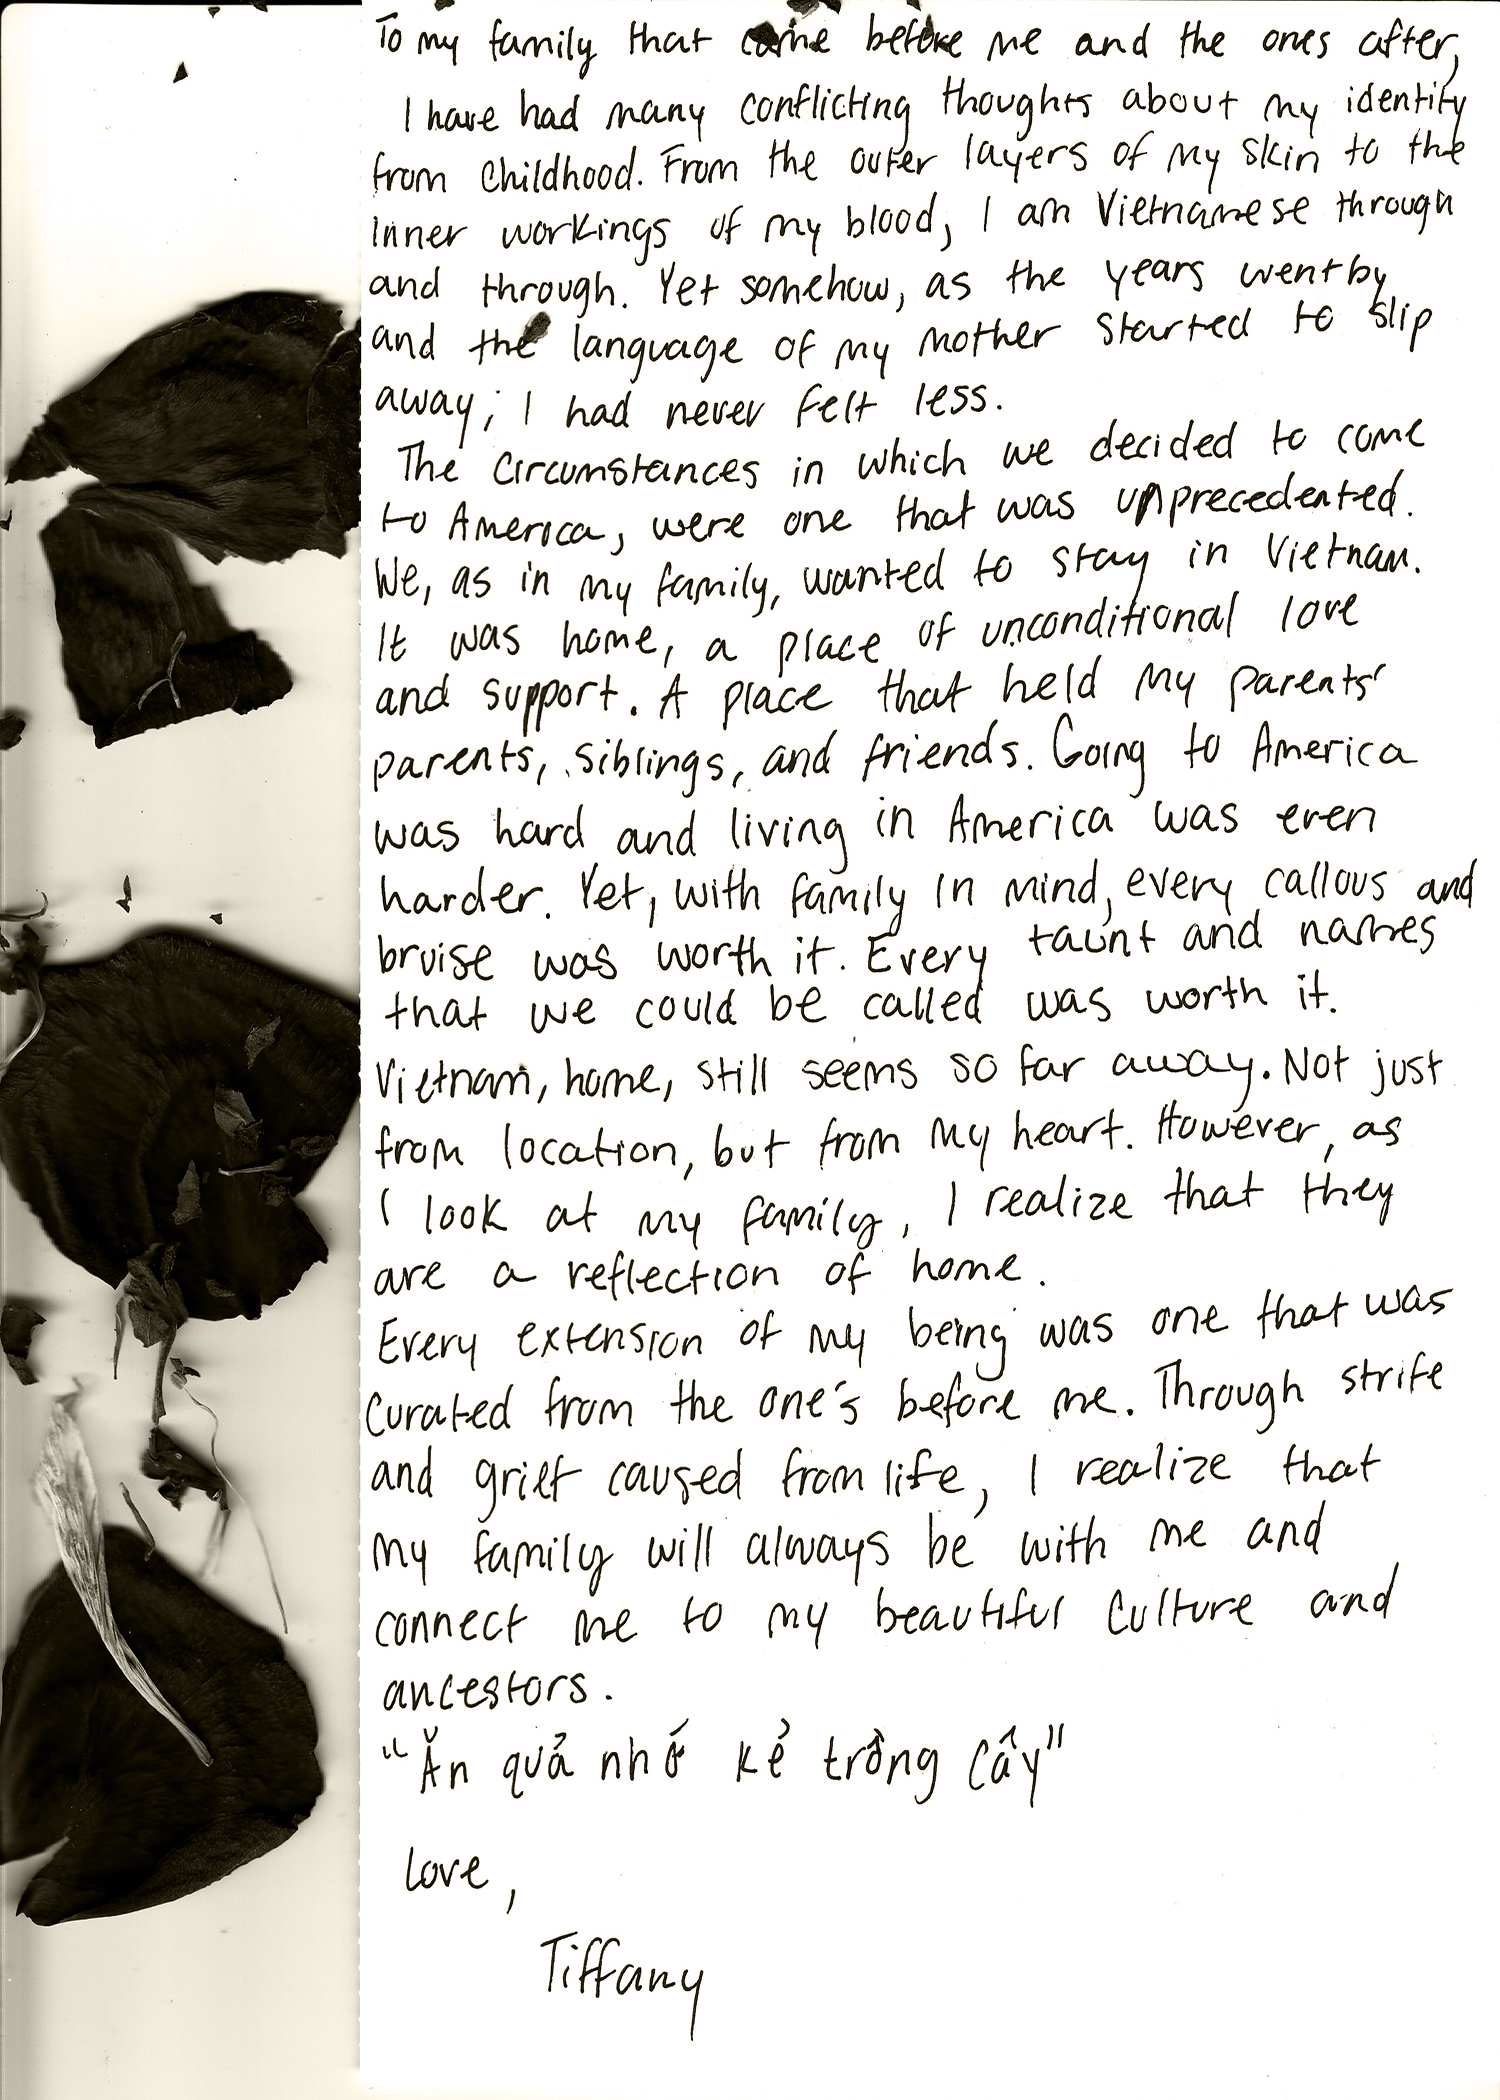 To my family that came before me and the ones after,
I have had many conflicting thoughts about my identity
from childhood. From the outer layers of my skin to the
inner workings of my blood, I am Vietnamese through
and through. Yet somehow, as the years went by
and the language of my mother started to slip
away; I had never felt less.
The circumstances in which we decided to come
to America, were one that was unprecedented.
We, as in my family, wanted to stay in Vietnam.
It was home, a place of unconditional love
and support. A place that held my parents'
parents, siblings, and friends. Going to America
was hard and living in America was even
harder. Yet, with family in mind, every callous and
bruise was worth it. Every taunt and names
that we could be called was worth it.
Vietnam, home, still seems so far away. Not just
from location, but from my heart. However, as
I look at my family, I realize that they
are a reflection of home.
Every extension of my being was one that was
curated from the one's before me. Through strife
and grief caused from life, I realize that
my family will always be with me and
connect me to my beautiful culture and
ancestors.
"Ăn quả nhớ kẻ trồng cây"
Love,
Tiffany